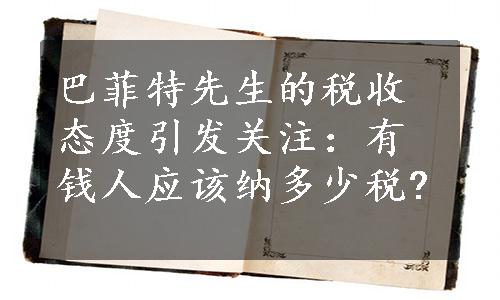 巴菲特先生的税收
态度引发关注：有
钱人应该纳多少税?